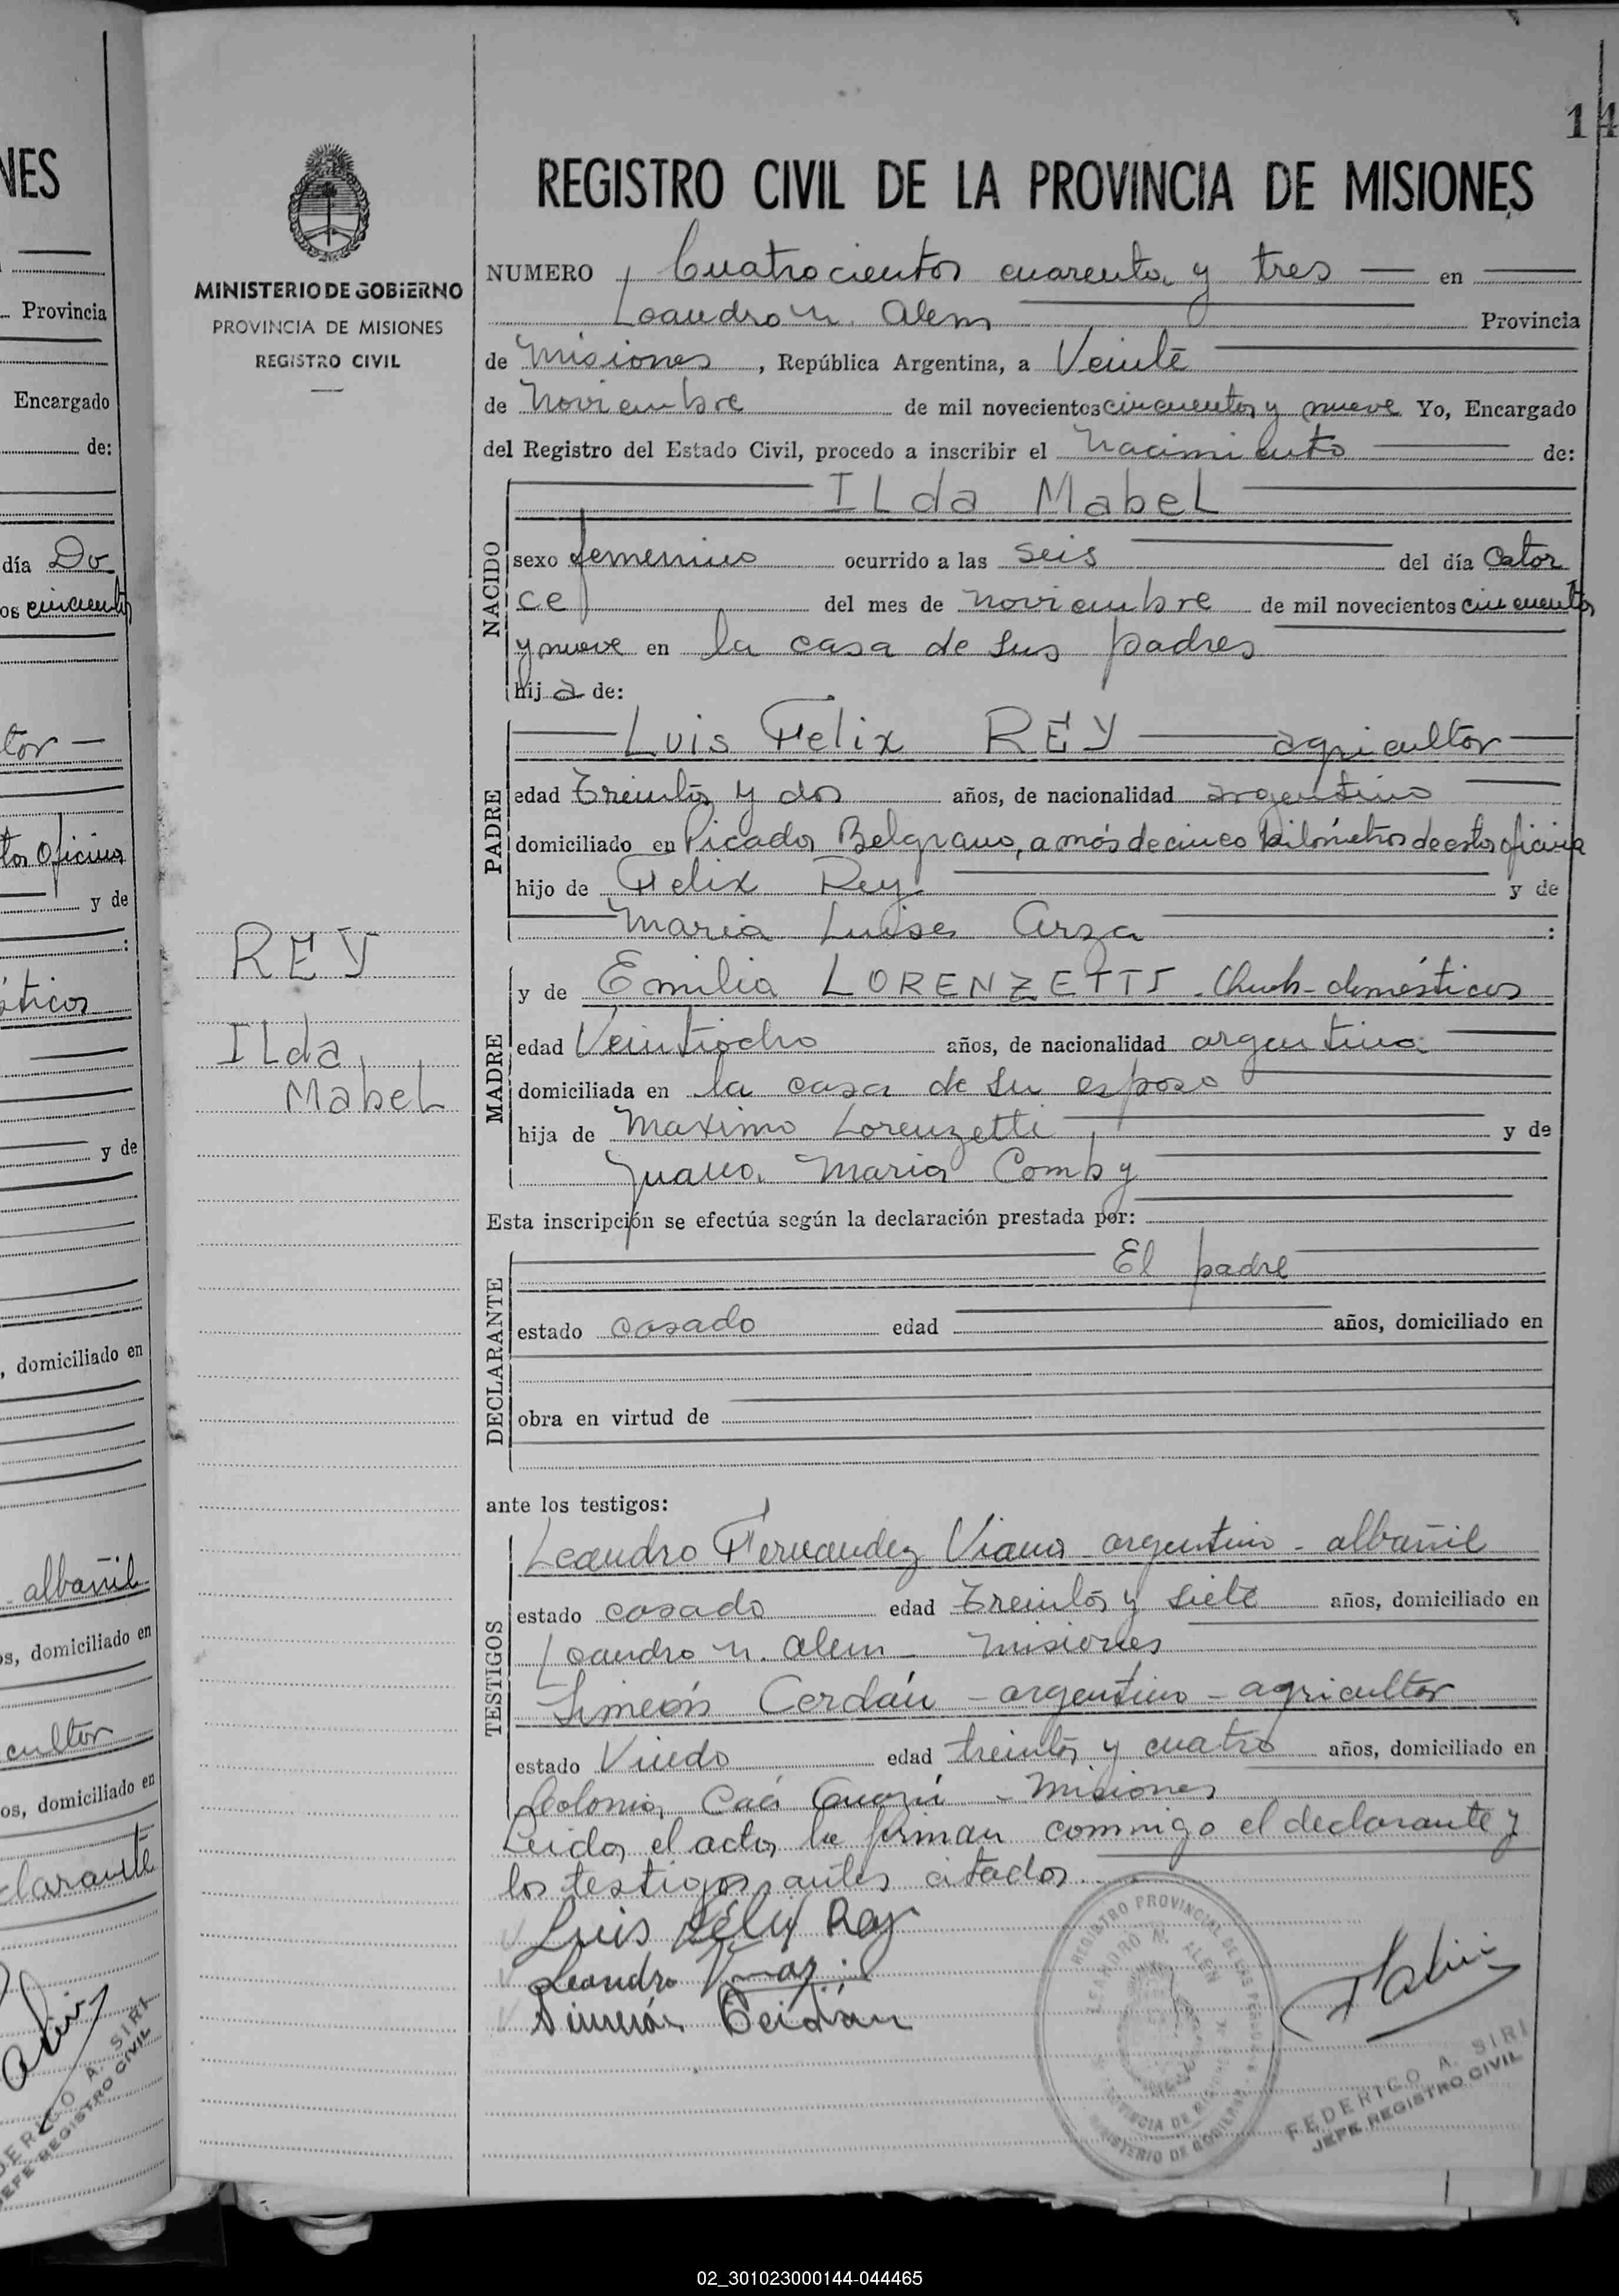 14
REGISTRO CIVIL DE LA PROVINCIA DE MISIONES
MINISTERIO DE GOBIERNO
PROVINCIA DE MISIONES
REGISTRO CIVIL
NUMERO Cuatrocientos cuarenta y tres en
Leandro N. Alem Provincia
de Misiones, República Argentina, a Veinte
de Noviembre de mil novecientos cincuenta y nueve Yo, Encargado
del Registro del Estado Civil, procedo a inscribir el Nacimiento de:
NACIDO
ILda MabeL
sexo femenino ocurrido a las seis del día Cator
ce del mes de noviembre de mil novecientos cincuenta
y nueve en la casa de sus padres
hij a de:
PADRE
Luis Felix REY agricultor
edad Treinta y dos años, de nacionalidad argentino
domiciliado en Picada Belgrano, a más de cinco kilómetros de esta oficina
hijo de Felix Rey y de
Maria Luisa Arza :
REY
ILda
MabeL
MADRE
y de Emilia LORENZETTI - domésticos
edad Veintiocho años, de nacionalidad argentina
domiciliada en la casa de su esposo
hija de Maximo Lorenzetti y de
Juana Maria Comby
Esta inscripción se efectúa según la declaración prestada por:
DECLARANTE
El padre
estado casado edad años, domiciliado en
obra en virtud de
ante los testigos:
TESTIGOS
Leandro Fernandez Viana - argentino - albañil
estado casado edad Treinta y siete años, domiciliado en
Leandro N. Alem - Misiones
Simeón Cerdán - argentino - agricultor
estado Viudo edad treinta y cuatro años, domiciliado en
Colonia Caá Guazú - Misiones
Leida el acta la firman conmigo el declarante y
los testigos antes citados.
Luis Félix Rey
Leandro
Simeón Cerdán
REGISTRO PROVINCIAL DE LAS PERSONAS
LEANDRO N. ALEN
PROVINCIA DE MISIONES
MINISTERIO DE GOBIERNO
FEDERICO A. SIRI
JEFE REGISTRO CIVIL
NES
Provincia
Encargado
de:
día Do
os cincuenta
tor
ta Oficina
y de
:
ésticos
y de
, domiciliado en
albañil
os, domiciliado en
cultor
os, domiciliado en
clarante
DERICO A. SIRI
JEFE REGISTRO CIVIL
02_301023000144-044465